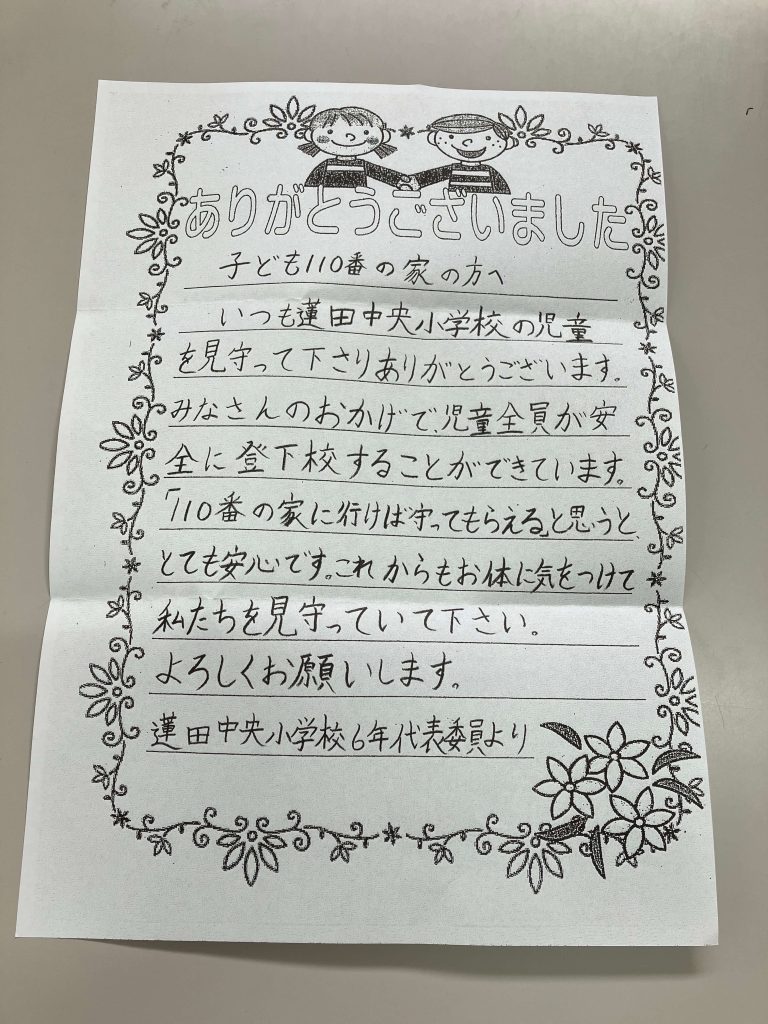 ありがとうございました
子ども110番の家の方へ
いつも蓮田中央小学校の児童
を見守って下さりありがとうございます。
みなさんのおかげで、児童全員が安
全に登下校することができています。
「110番の家に行けば守ってもらえる」と思うと、
とても安心です。これからもお体に気をつけて
私たちを見守っていて下さい。
よろしくお願いします。
蓮田中央小学校6年代表委員より